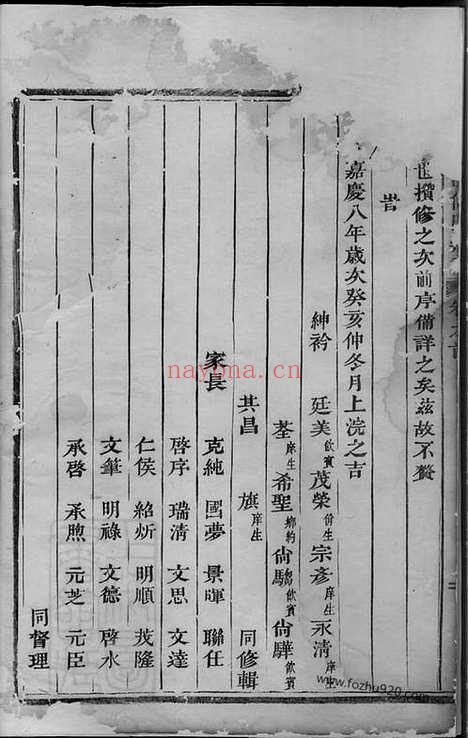 也攢修之次前序備詳之矣茲故不贅
旹
嘉慶八年歲次癸亥仲冬月上浣之吉
紳衿 廷美飲賓 茂榮佾生 宗彥庠生 永清庠生
荃庠生 希聖鄉約 尙騶飲賓 尙驊飲賓
其昌 旗庠生 同修輯
家長 克純 國夢 景暉 聯任
啓序 瑞清 文思 文達
仁侯 紹炘 明順 茂隆
文筆 明祿 文德 啓水
承啓 承煦 元芝 元臣
同督理
nayoma.com
www.fozhu920.com